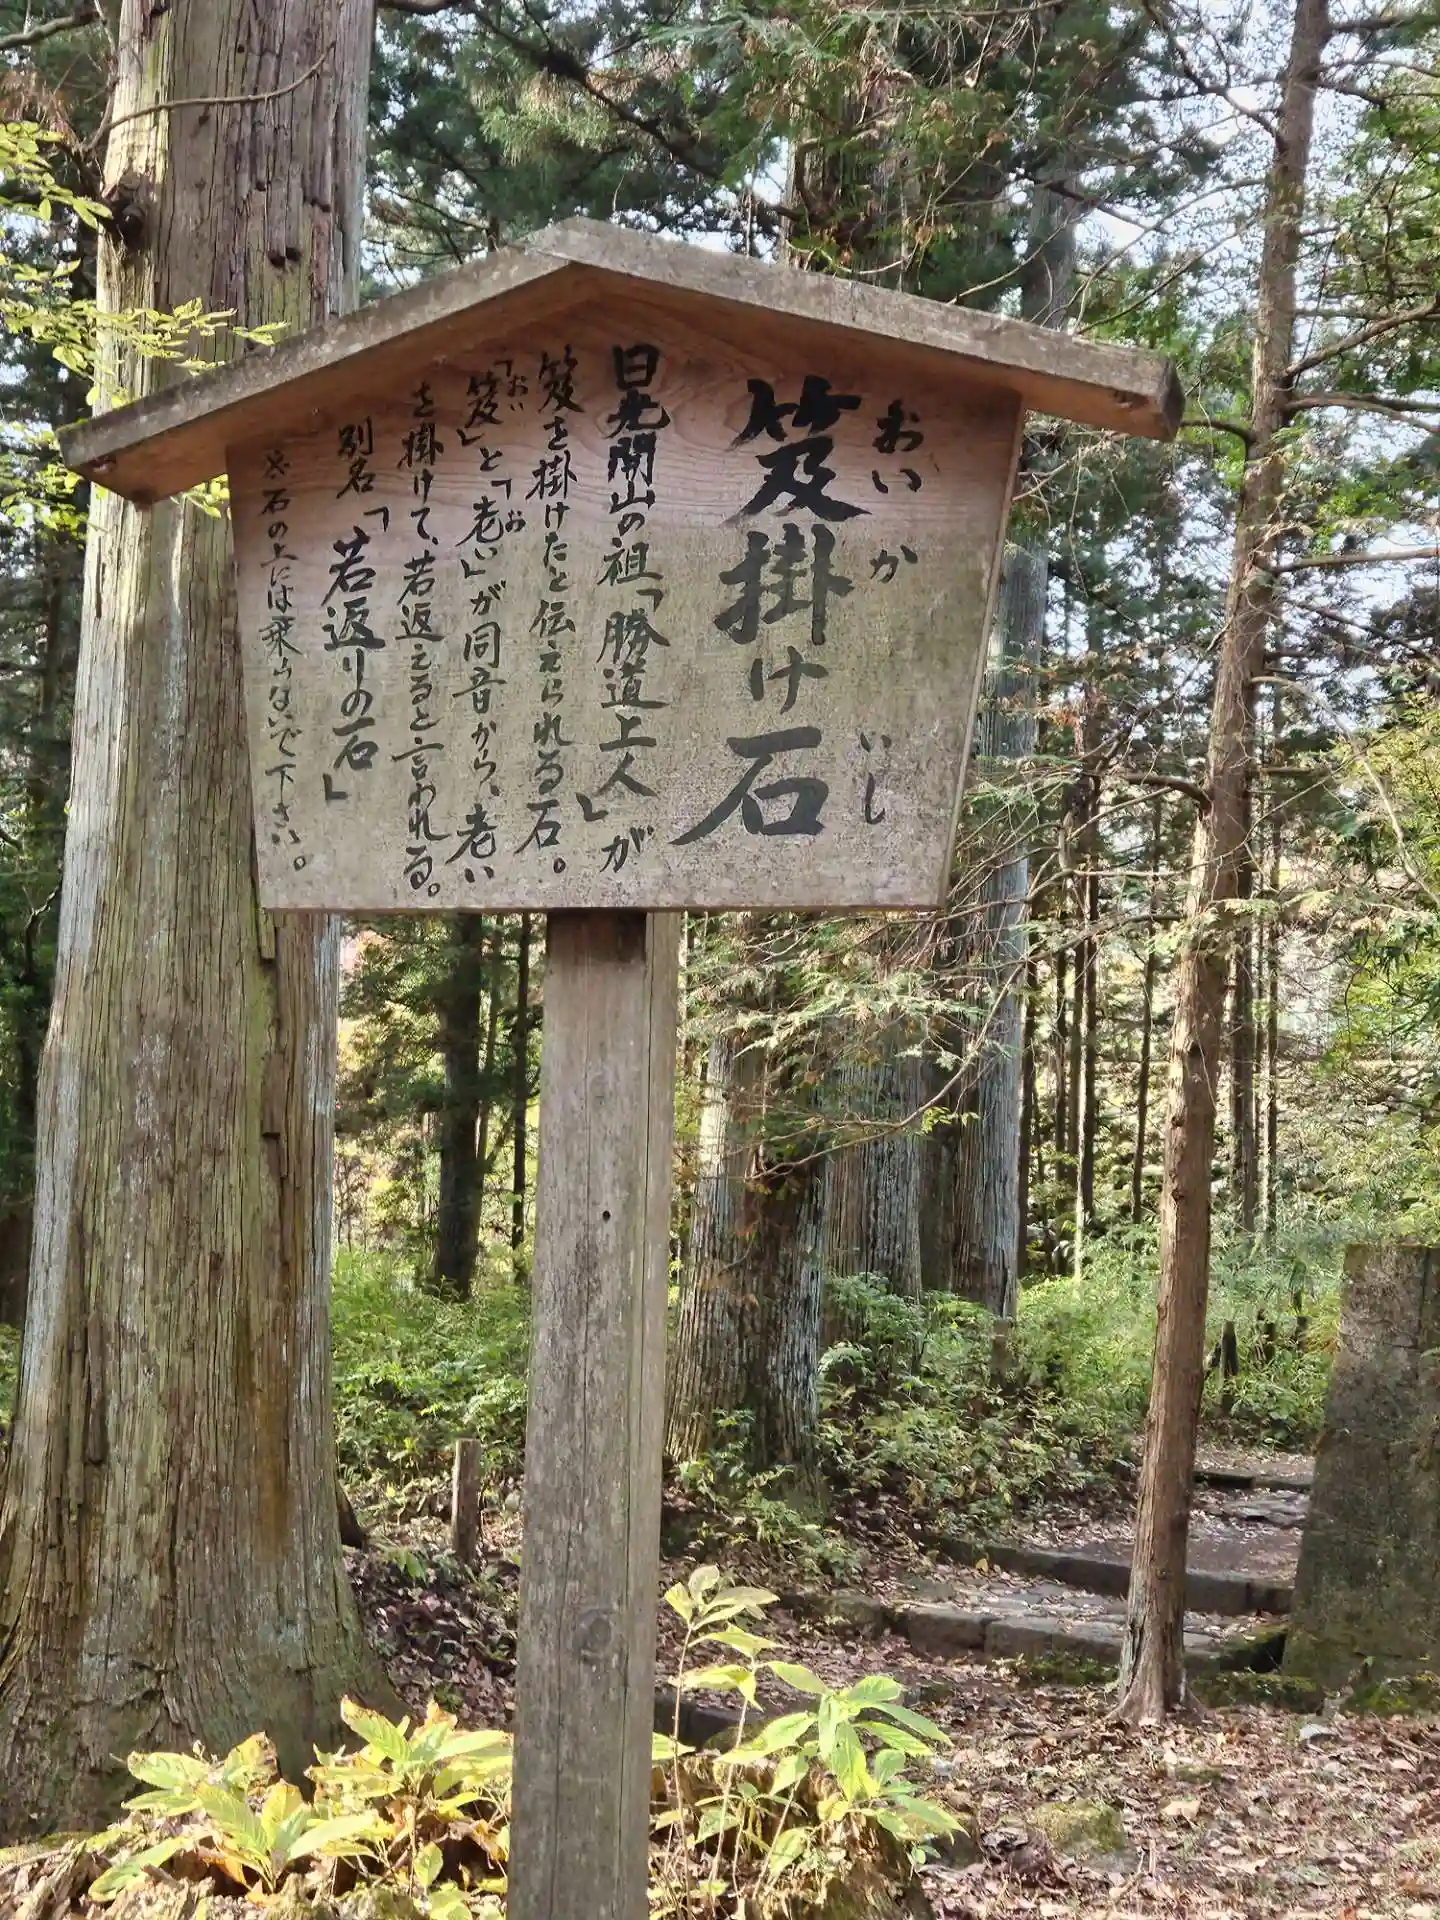 笈掛け石
おいか いし
日光開山の祖「勝道上人」が
笈を掛けたと伝えられる石。
「笈」と「老い」が同音から、老い
おい お
を掛けて、若返えると言われる。
別名「若返りの石」
※石の上には乗らないで下さい。